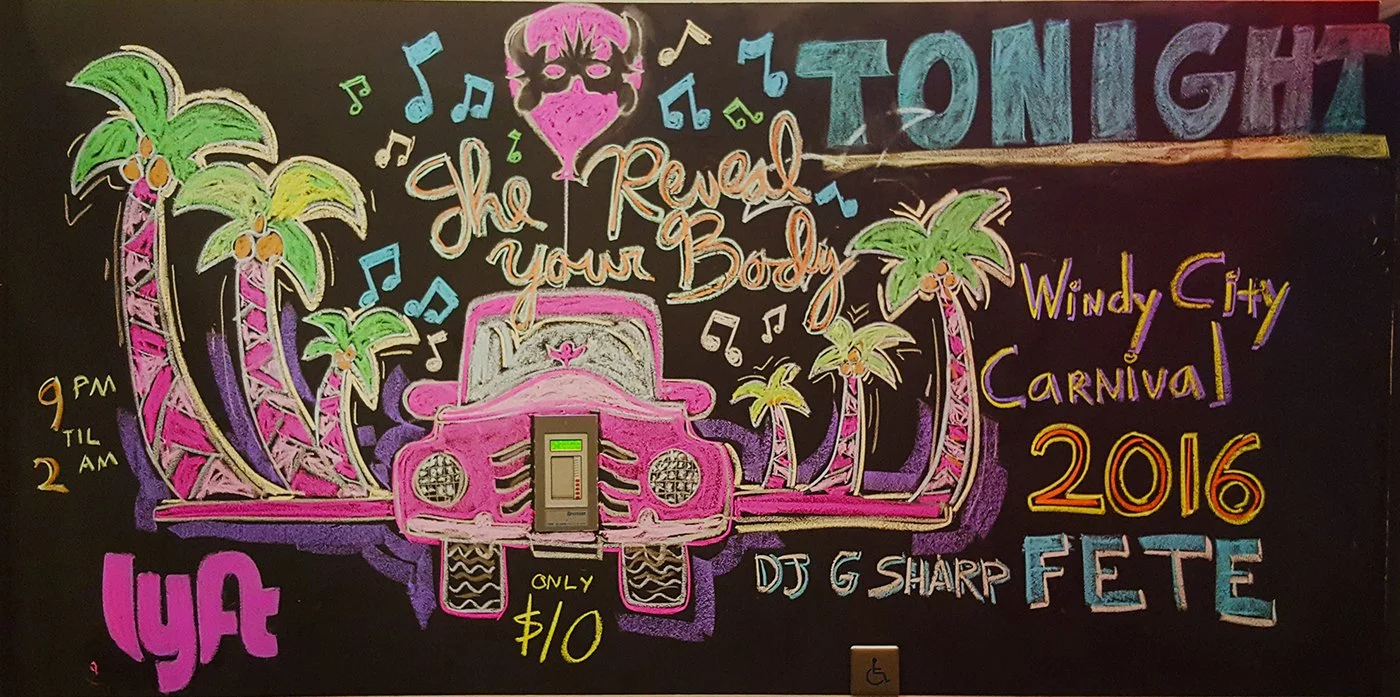 TONIGHT
The Reveal
your Body
Windy City
Carnival
2016
FETE
DJ G SHARP
9 PM
TIL
2 AM
ONLY
$10
lyft